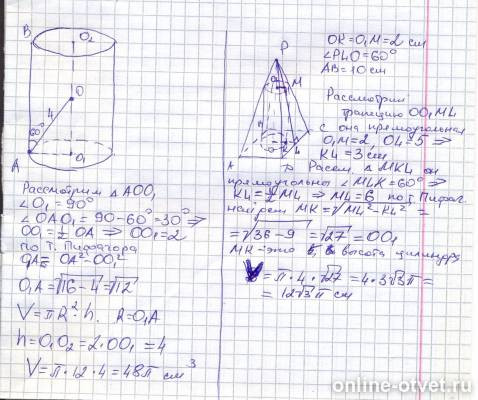 B
O₂
O
4
60°
A
O₁
Рассмотрим △AOO₁
∠O₁ = 90°
∠OAO₁ = 90-60° = 30° ⇒
OO₁ = ½ OA ⇒ OO₁ = 2
по т. Пифагора
OA² - OO₁²
O₁A = √16-4 = √12
V = πR²·h. R = O₁A
h = O₁O₂ = 2·OO₁ = 4
V = π·12·4 = 48π см³
P
M
A
OK = O₁M = 2 см
∠PLO = 60°
AB = 10 см
Рассмотрим
трапецию OO₁ML
с она прямоугольная
O₁M = 2, OL = 5 ⇒
KL = 3 см
Рассм. △MKL он
прямоугольный ∠MLK = 60° ⇒
KL = ½ ML ⇒ ML = 6 по т. Пифаг.
найдем MK = √ML² - KL² =
= √36-9 = √27 = OO₁
MK - это высота цилиндра
V = π·4·√27 = 4·3√3π =
= 12√3π см
online-otvet.ru